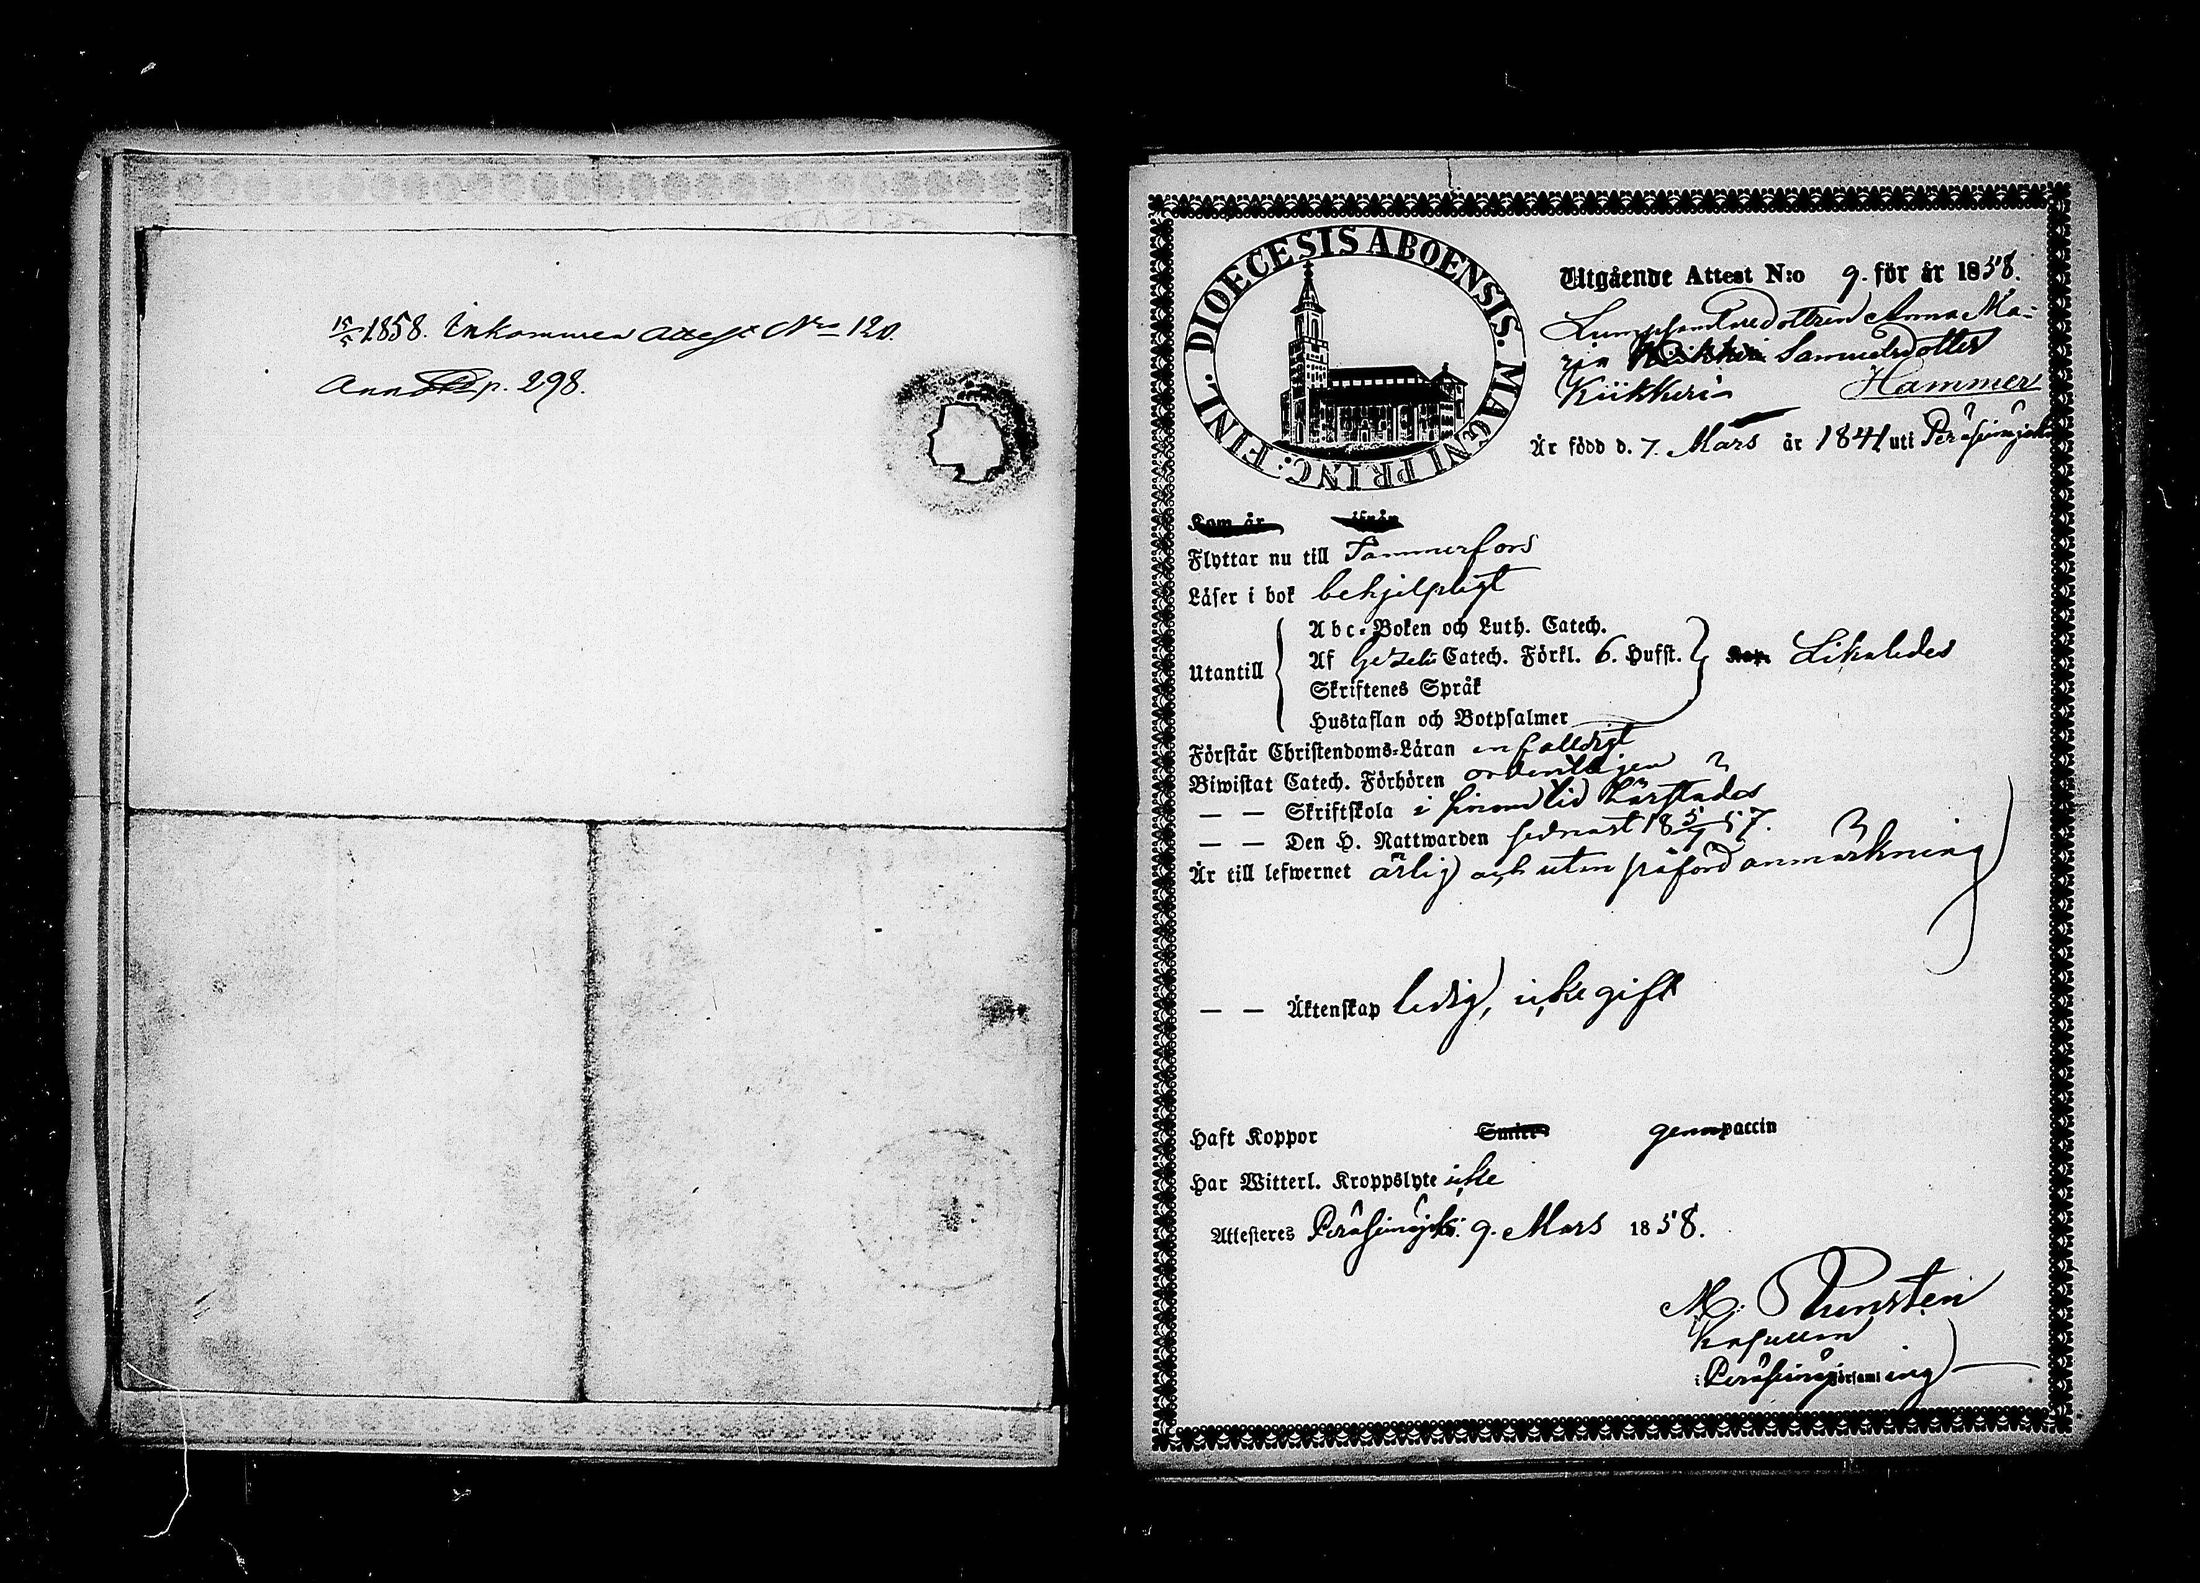 15/5 1858. Inkommen Attest Nro 120.
Anna p. 298.
FINL. DIOECESIS ABOENSIS. MAGNI PRINC:
Utgående Attest N:o 9. för år 1858.
dottren Anna Ma-
ria Samuelsdotter
Kiikkeri Hammer
Är född d. 7. Mars år 1841 uti Peräseinäjoki
Kom år ifrån
Flyttar nu till Tammerfors
Läser i bok behjelpligt
Abc-Boken och Luth. Catech.
Utantill Af Gezelii Catech. Förkl. 6. Hufst. Kap. Likaledes
Skriftenes Språk
Hustaflan och Botpsalmer
Förstår Christendoms-Läran enfalldigt
Biwistat Catech. Förhören ordentligen
— — Skriftskola i sinom tid härstädes
— — Den H. Nattwarden sednast 18 5/7 57.
Är till lefwernet ärlig och utan påförd anmärkning
— — Äktenskap ledig, icke gift
Haft Koppor genom vaccin
Har Witterl. Kroppslyte icke
Attesteres Peräseinäjoki 9. Mars 1858.
M. Runsten
Kapellan
i Peräseinäj. Församling